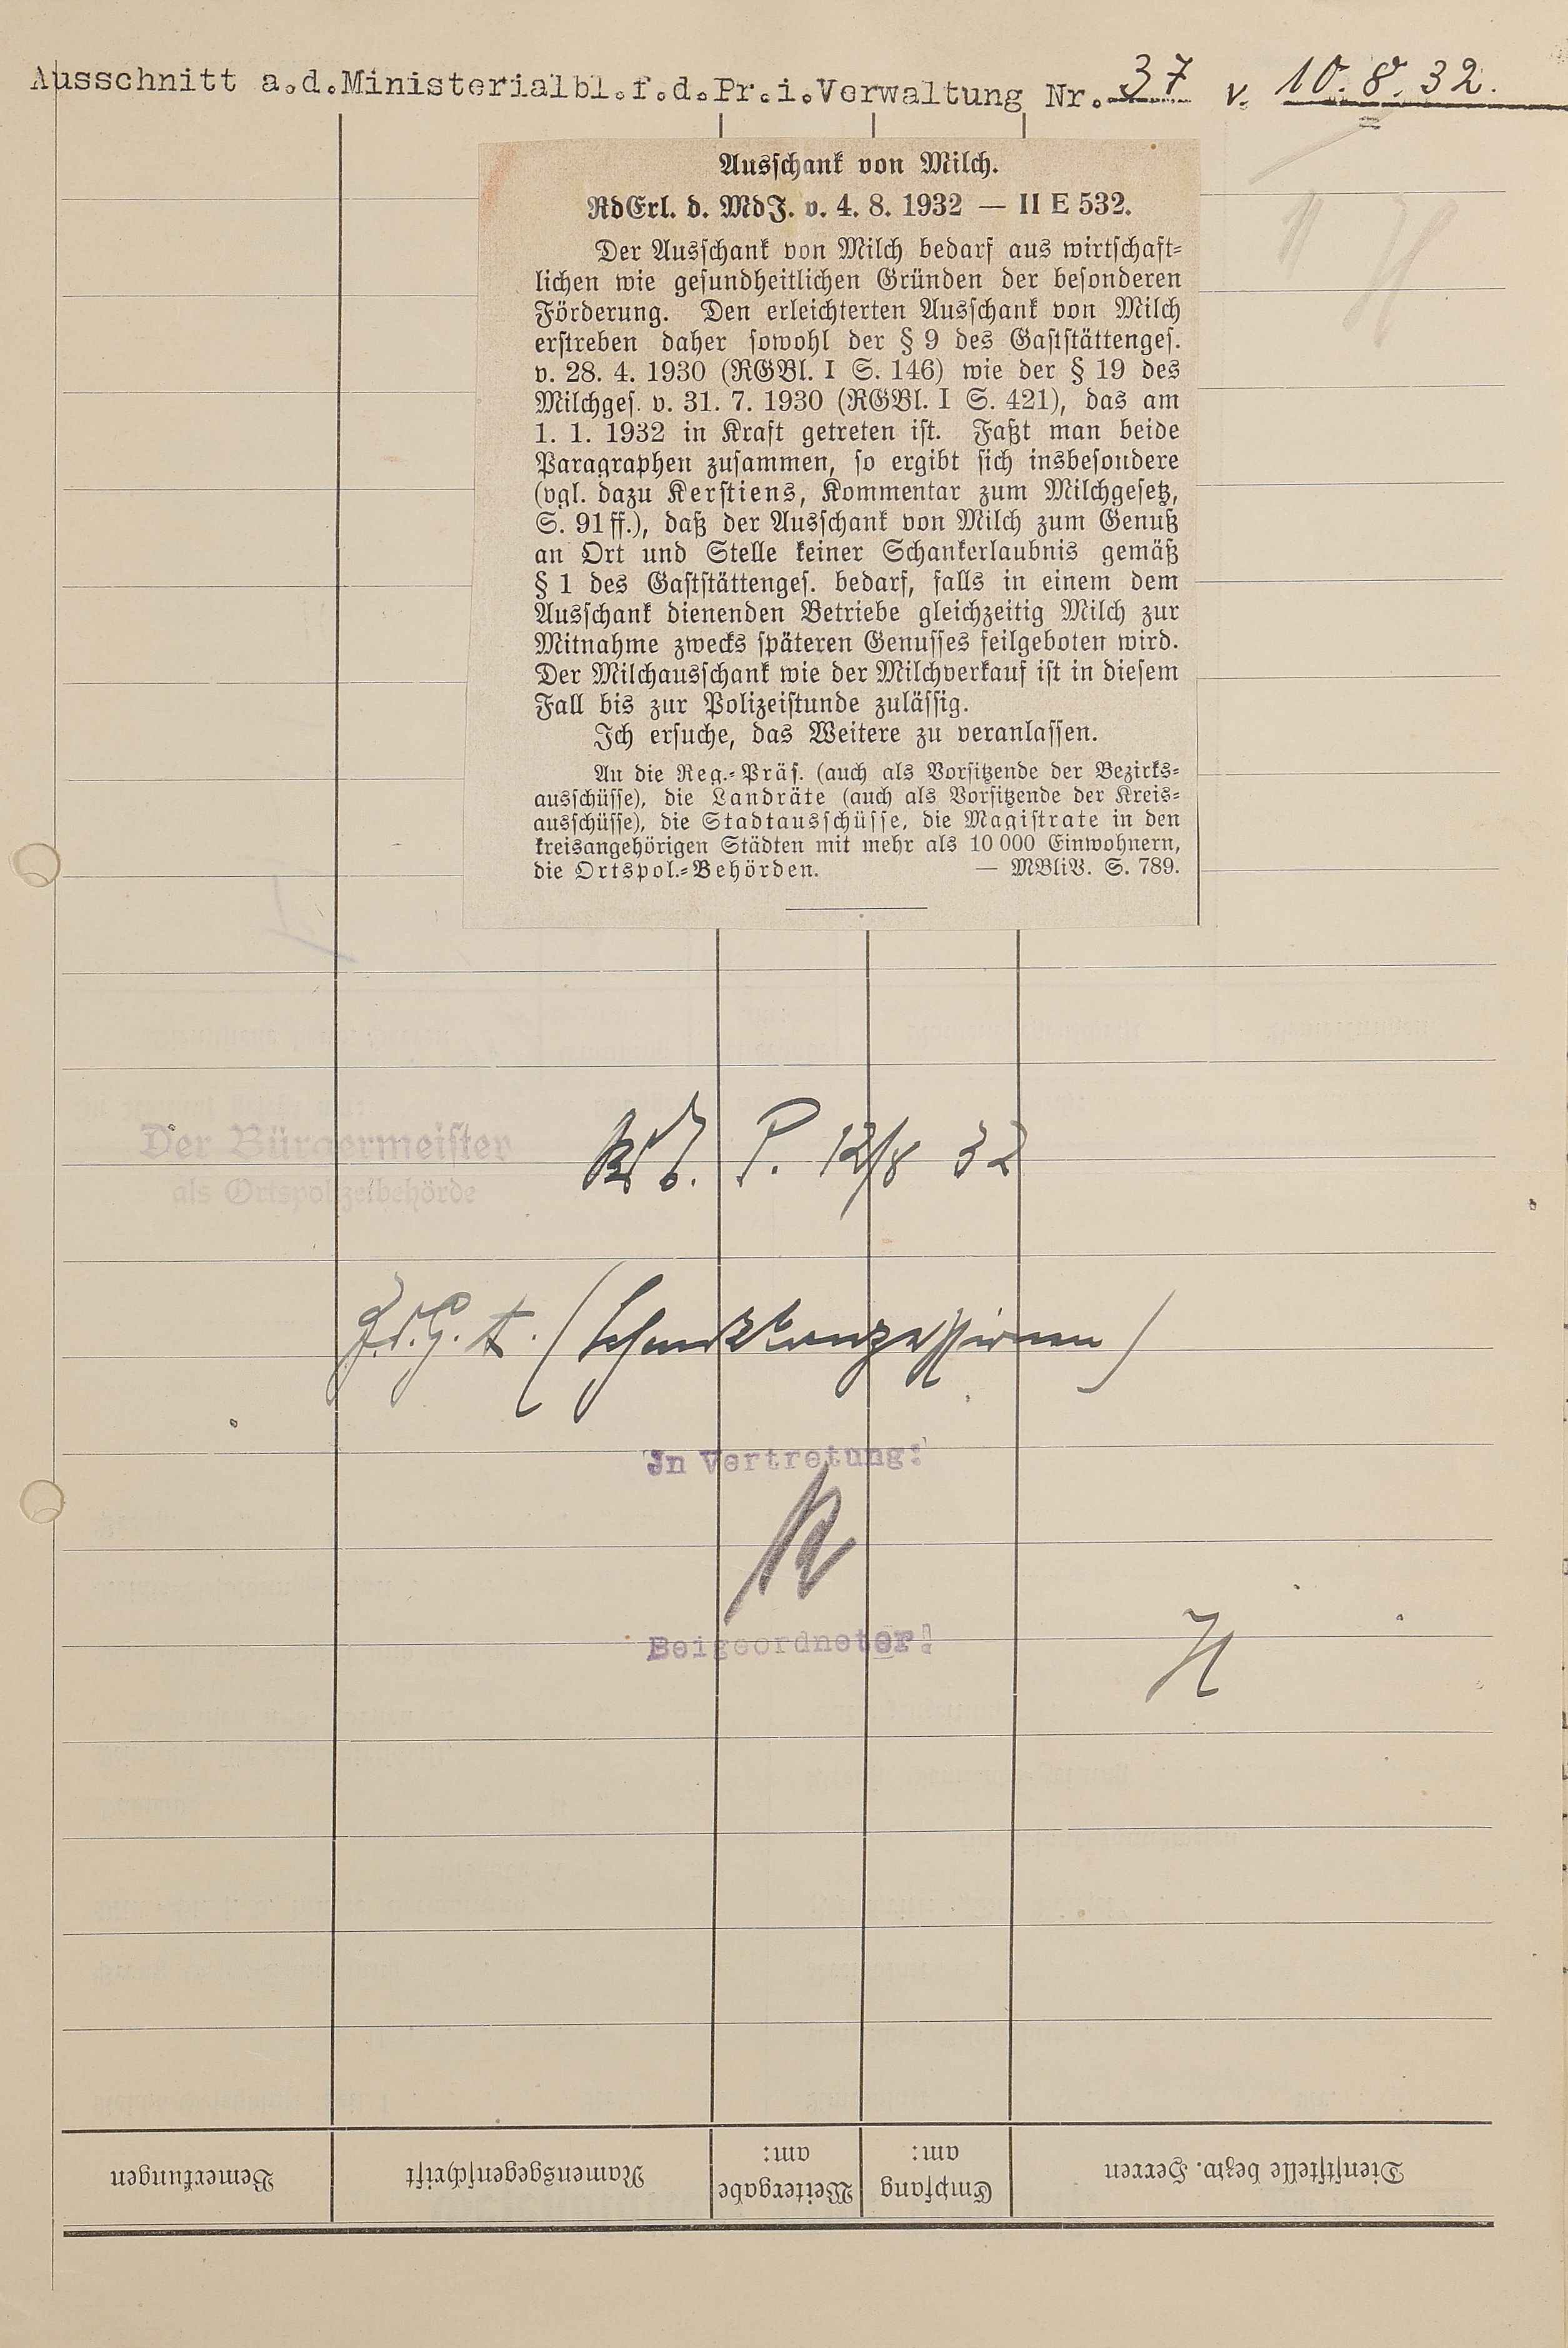 Ausschnitt a.d.Ministerialbl.f.d.Pr.i.Verwaltung Nr. 37 v. 10.8.32.
Ausschank von Milch.
RdErl. d. MdJ. v. 4. 8. 1932 — II E 532.
Der Ausschank von Milch bedarf aus wirtschaft-
lichen wie gesundheitlichen Gründen der besonderen
Förderung. Den erleichterten Ausschank von Milch
erstreben daher sowohl der § 9 des Gaststättenges.
v. 28. 4. 1930 (RGBl. I S. 146) wie der § 19 des
Milchges. v. 31. 7. 1930 (RGBl. I S. 421), das am
1. 1. 1932 in Kraft getreten ist. Faßt man beide
Paragraphen zusammen, so ergibt sich insbesondere
(vgl. dazu Kerstiens, Kommentar zum Milchgesetz,
S. 91 ff.), daß der Ausschank von Milch zum Genuß
an Ort und Stelle keiner Schankerlaubnis gemäß
§ 1 des Gaststättenges. bedarf, falls in einem dem
Ausschank dienenden Betriebe gleichzeitig Milch zur
Mitnahme zwecks späteren Genusses feilgeboten wird.
Der Milchausschank wie der Milchverkauf ist in diesem
Fall bis zur Polizeistunde zulässig.
Ich ersuche, das Weitere zu veranlassen.
An die Reg.-Präs. (auch als Vorsitzende der Bezirks-
ausschüsse), die Landräte (auch als Vorsitzende der Kreis-
ausschüsse), die Stadtausschüsse, die Magistrate in den
kreisangehörigen Städten mit mehr als 10 000 Einwohnern,
die Ortspol.-Behörden. — MBliV. S. 789.
Der Bürgermeister
als Ortspolizeibehörde
P. 12/8 32
(Schankkonzessionen)
In Vertretung:
Beigeordneter!
Dienststelle bezw. Herren
Empfang am:
Weitergabe am:
Namensgegenschrift
Bemerkungen